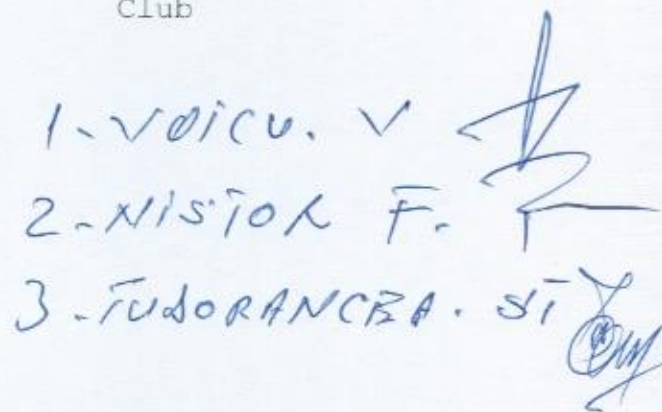 Club
1. VOICU. V
2. NISTOR F.
3. TUDORANCEA. ST